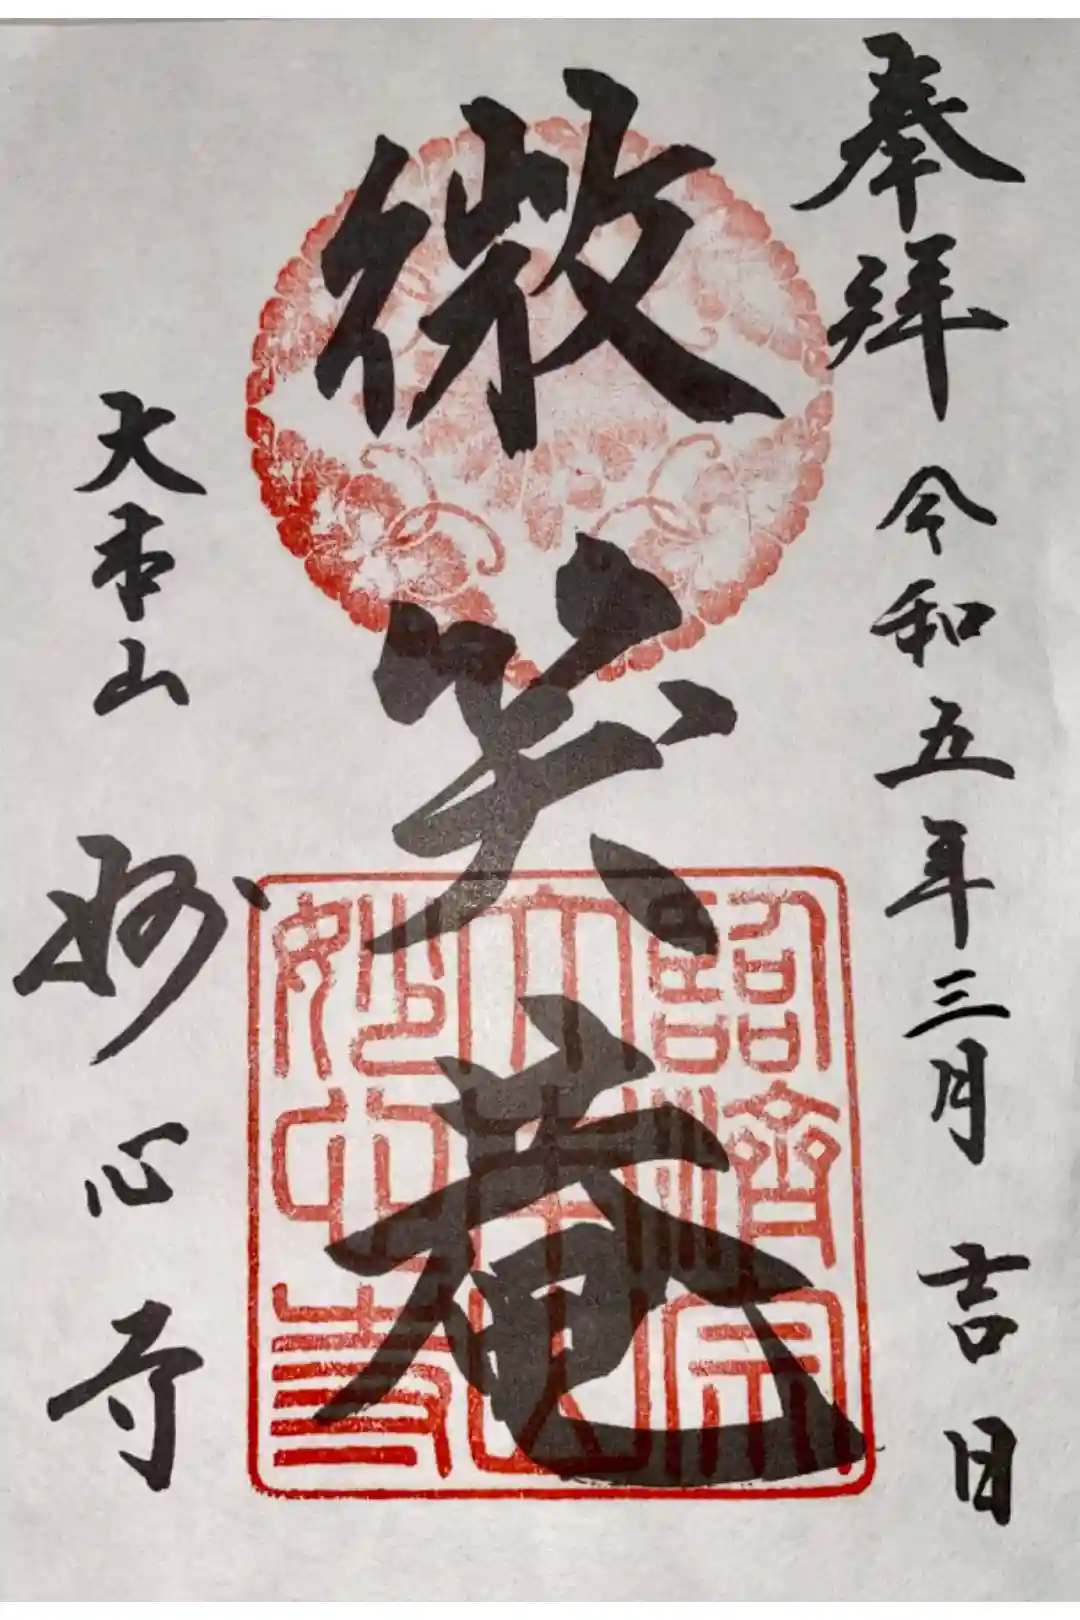 奉拝 令和五年三月吉日
微笑庵
臨済宗
大本山
妙心寺
大本山 妙心寺